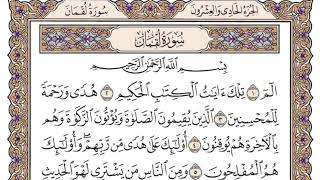 الجُزْءُ الحَادِي وَالعِشْرُونَ
سُورَةُ لُقْمَان
سُورَةُ لُقْمَانَ
بِسْمِ اللَّهِ الرَّحْمَٰنِ الرَّحِيمِ
الٓمٓ ١ تِلْكَ ءَايَٰتُ الْكِتَٰبِ الْحَكِيمِ ٢ هُدًى وَرَحْمَةً
لِّلْمُحْسِنِينَ ٣ الَّذِينَ يُقِيمُونَ الصَّلَوٰةَ وَيُؤْتُونَ الزَّكَوٰةَ وَهُم
بِالْأَخِرَةِ هُمْ يُوقِنُونَ ٤ أُوْلَٰٓئِكَ عَلَىٰ هُدًى مِّن رَّبِّهِمْ ۖ وَأُوْلَٰٓئِكَ
هُمُ الْمُفْلِحُونَ ٥ وَمِنَ النَّاسِ مَن يَشْتَرِى لَهْوَ الْحَدِيثِ